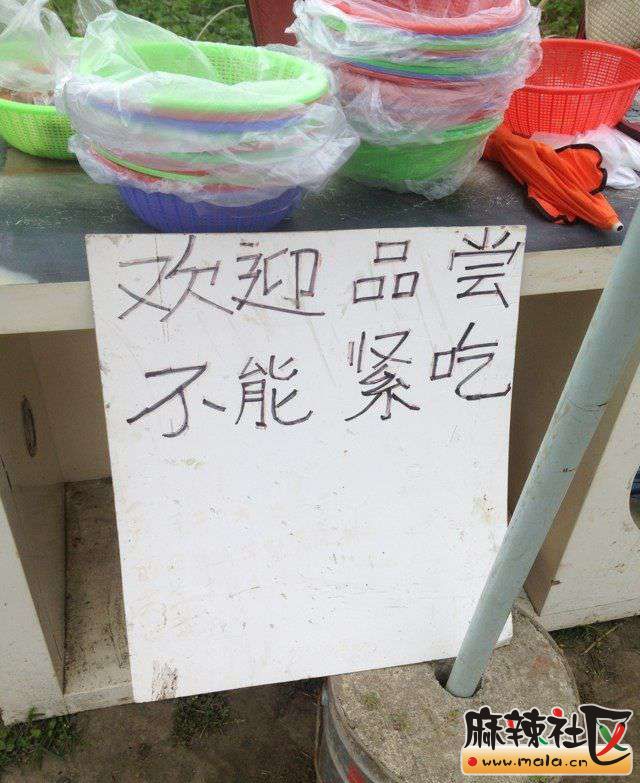 欢迎 品尝
不能 紧吃
麻辣社区
www.mala.cn